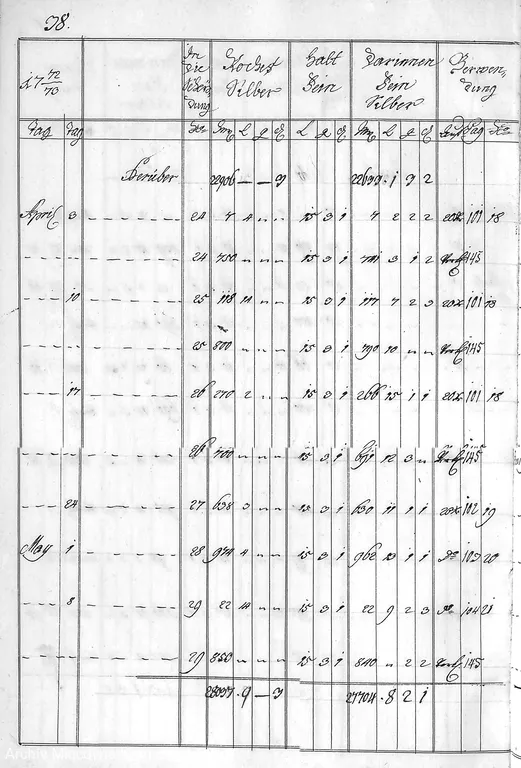 38.
17 72/73 In die Schei- dung Kochst Silber Halt Fein Darinnen Fein Silber Verwen- dung
Tag No Mr L q d L q d Mr L q d Pag No
Herüber 22906 — — 3 22699 1 3 2
April 3 24 7 4 " " 15 3 1 7 2 2 2 101 18
24 750 " " " 15 3 1 741 3 1 2 145
10 25 118 11 " " 15 3 1 117 7 2 3 101 18
25 800 " " " 15 3 1 790 10 " " 145
17 26 270 2 " " 15 3 1 266 15 1 1 101 18
26 700 " " " 15 3 1 691 12 3 " 145
24 27 638 3 " " 15 3 1 630 11 1 1 102 19
May 1 28 974 4 " " 15 3 1 962 13 1 1 103 20
8 29 22 14 " " 15 3 1 22 9 2 3 104 21
29 850 " " " 15 3 1 840 " 2 2 145
28037 9 — 3 27704 8 2 1